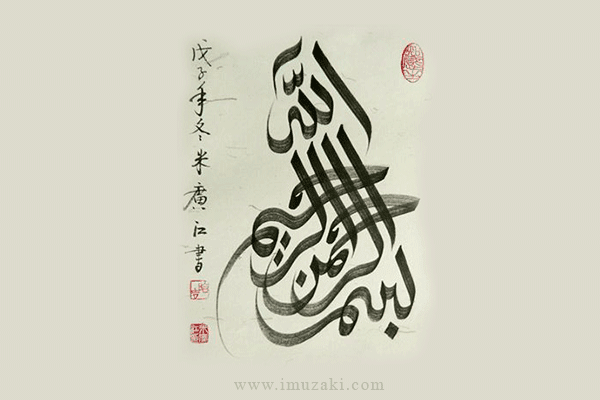 بسم الله الرحمن الرحيم
戊子年冬米廣江書
www.imuzaki.com